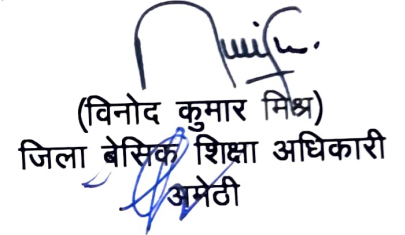 (विनोद कुमार मिश्र)
जिला बेसिक शिक्षा अधिकारी
अमेठी